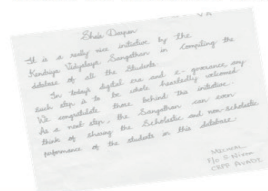 Shala Darpan
It is a really nice initiative by the
Kendriya Vidyalaya Sangathan in compiling the
database of all the Students.
In today's digital era and e-governance any
such step is to be whole heartedly welcomed.
We congratulate those behind this initiative.
As a next step, the Sangathan can even
think of sharing the Scholastic and non-Scholastic
performance of the students in this database.